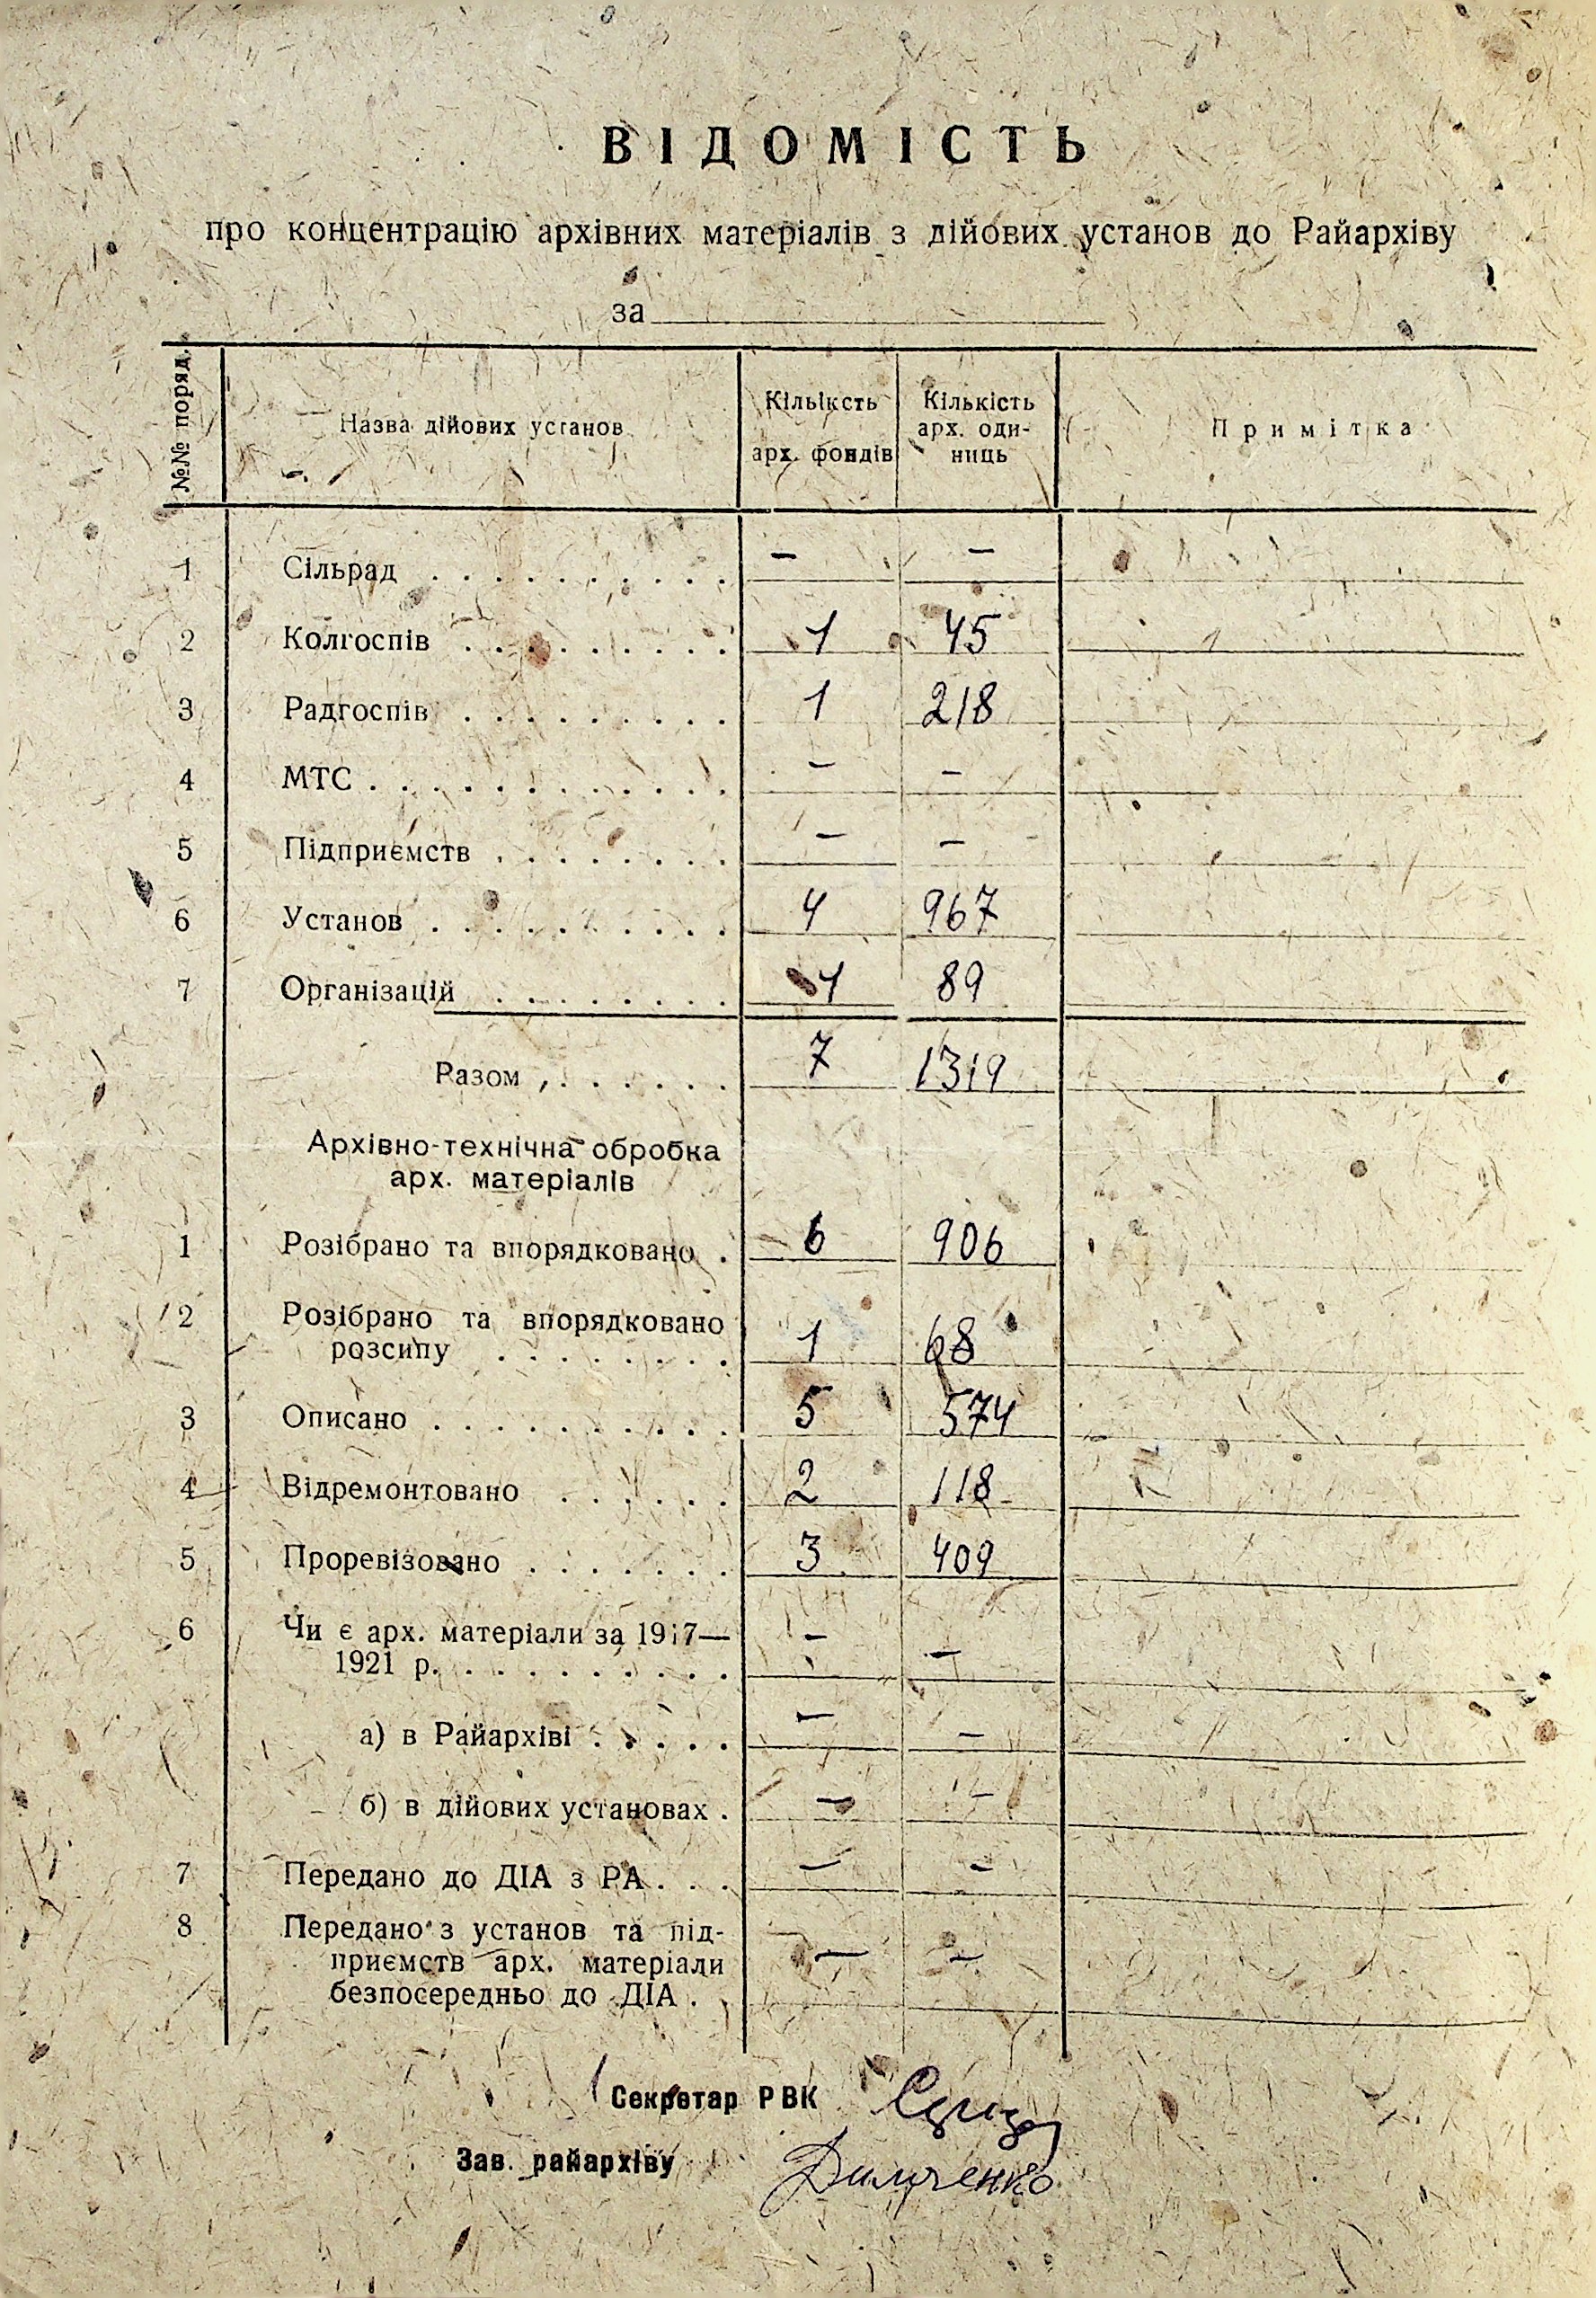 ВІДОМІСТЬ
про концентрацію архівних матеріалів з дійових установ до Райархіву
за
№№ поряд. Назва дійових установ Кільіксть арх. фондів Кількість арх. оди- ниць Примітка
1 Сільрад . . . . . . . . . . – –
2 Колгоспів . . . . . . . . . 1 45
3 Радгоспів . . . . . . . . . 1 218
4 МТС . . . . . . . . . . . . – –
5 Підприємств . . . . . . . . – –
6 Установ . . . . . . . . . . 4 967
7 Організацій . . . . . . . . 1 89
Разом , . . . . . . 7 1319
Архівно-технічна обробка
арх. матеріалів
1 Розібрано та впорядковано . 6 906
2 Розібрано та впорядковано
розсипу . . . . . . . . 1 68
3 Описано . . . . . . . . . . 5 574
4 Відремонтовано . . . . . . 2 118
5 Проревізовано . . . . . . . 3 409
6 Чи є арх. матеріали за 1917—
1921 р. . . . . . . . . . . – –
а) в Райархіві . . . . . – –
б) в дійових установах . – –
7 Передано до ДІА з РА . . . – –
8 Передано з установ та під-
приємств арх. матеріали – –
безпосередньо до ДІА . .
Секретар РВК
Зав. райархіву